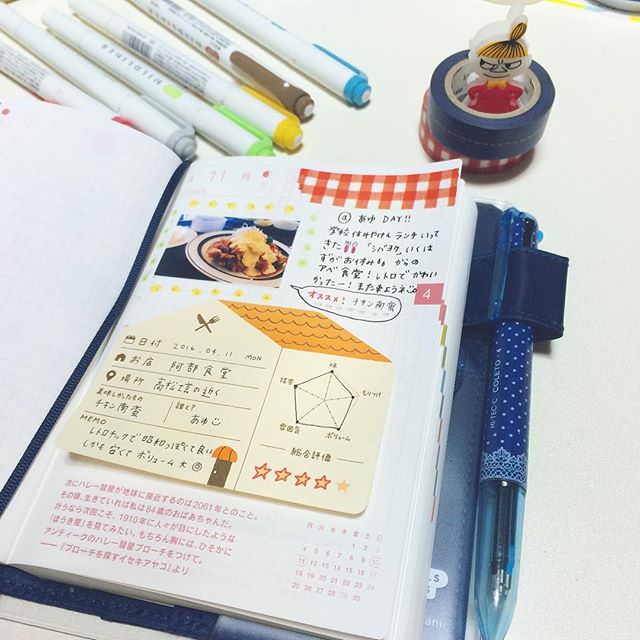 11 月
@ あゆ DAY!!
学校休みやけん ランチいって
きた 「シバヨタ」いくは
ずがお休みも からの
アベ食堂！レトロでかわい
かったー！またきようねっ
オススメ！ チキン南蛮
4
日付 2016.04.11 MON
お店 阿部食堂
場所 高松工芸の近く
美味しかったもの チキン南蛮
誰と? あゆこ
MEMO
レトロチックで昭和っぽくて良い
しかも安くてボリューム大◎
味
もりつけ
ボリューム
雰囲気
接客
総合評価
次にハレー彗星が地球に接近するのは2061年とのこと。
その頃、生きていれば私は84歳のおばあちゃんだ。
叶うなら次回こそ、1910年に人々が目にしたような
「ほうき星」を見てみたい。もちろん胸には、ひそかに
アンティークのハレー彗星ブローチをつけて。
──『ブローチを探すイセキアヤコ』より
月 火 水 木 金 土 日
1 2 3
4 5 6 7 8 9 10
11 12 13 14 15 16 17
18 19 20 21 22 23 24
25 26 27 28 29 30
HI-TEC-C COLETO
MILDLINER